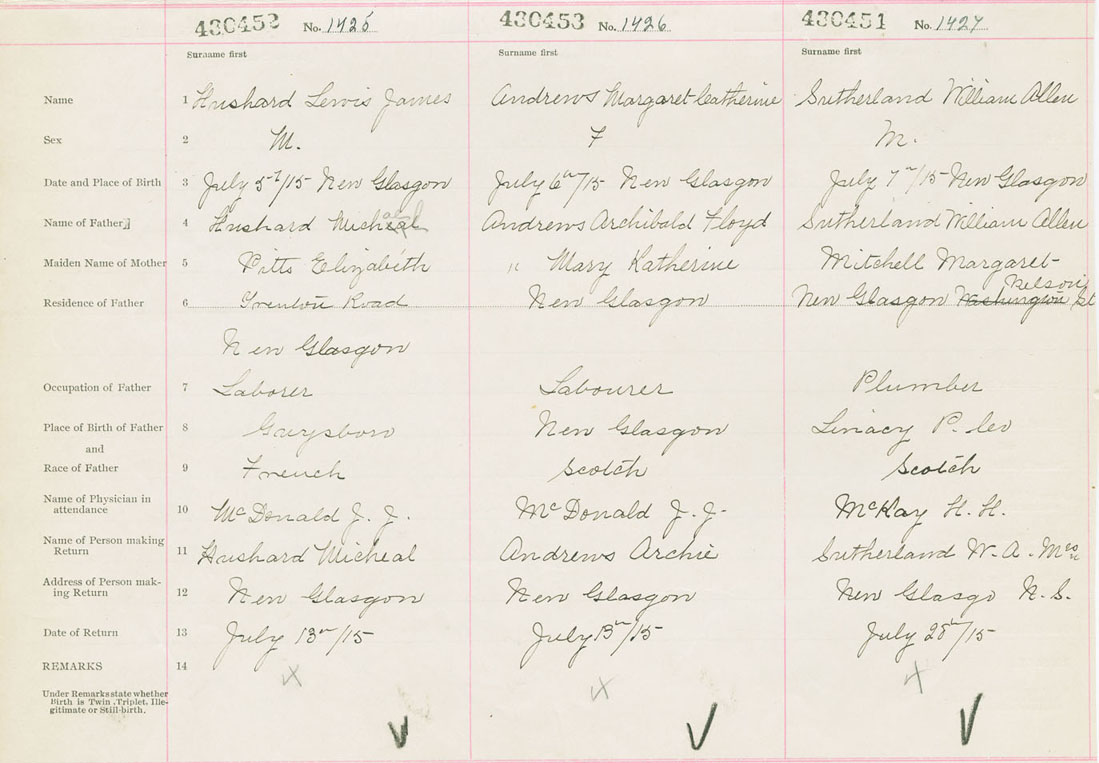 430452 No. 1425 430453 No. 1426 430451 No. 1427
Surname first Surname first Surname first
Name 1 Hushard Lewis James Andrews Margaret Catherine Sutherland William Allen
Sex 2 M. F M.
Date and Place of Birth 3 July 5th/15 New Glasgow July 6th/15 New Glasgow July 7th/15 New Glasgow
Name of Father 4 Hushard Micheal Andrews Archibald Floyd Sutherland William Allen
Maiden Name of Mother 5 Pitts Elizabeth " Mary Katherine Mitchell Margaret
Nelson
Residence of Father 6 Trenton Road New Glasgow New Glasgow Washington St
New Glasgow
Occupation of Father 7 Laborer Labourer Plumber
Place of Birth of Father 8 Guysboro New Glasgow Linacy P. Co
and
Race of Father 9 French Scotch Scotch
Name of Physician in
attendance 10 McDonald J. J. McDonald J. J. McKay H. H.
Name of Person making
Return 11 Hushard Micheal Andrews Archie Sutherland W. A. Mrs
Address of Person mak-
ing Return 12 New Glasgow New Glasgow New Glasgo N.S.
Date of Return 13 July 13th/15 July 13th/15 July 20th/15
REMARKS 14
Under Remarks state whether
Birth is Twin, Triplet, Ille-
gitimate or Still-birth.